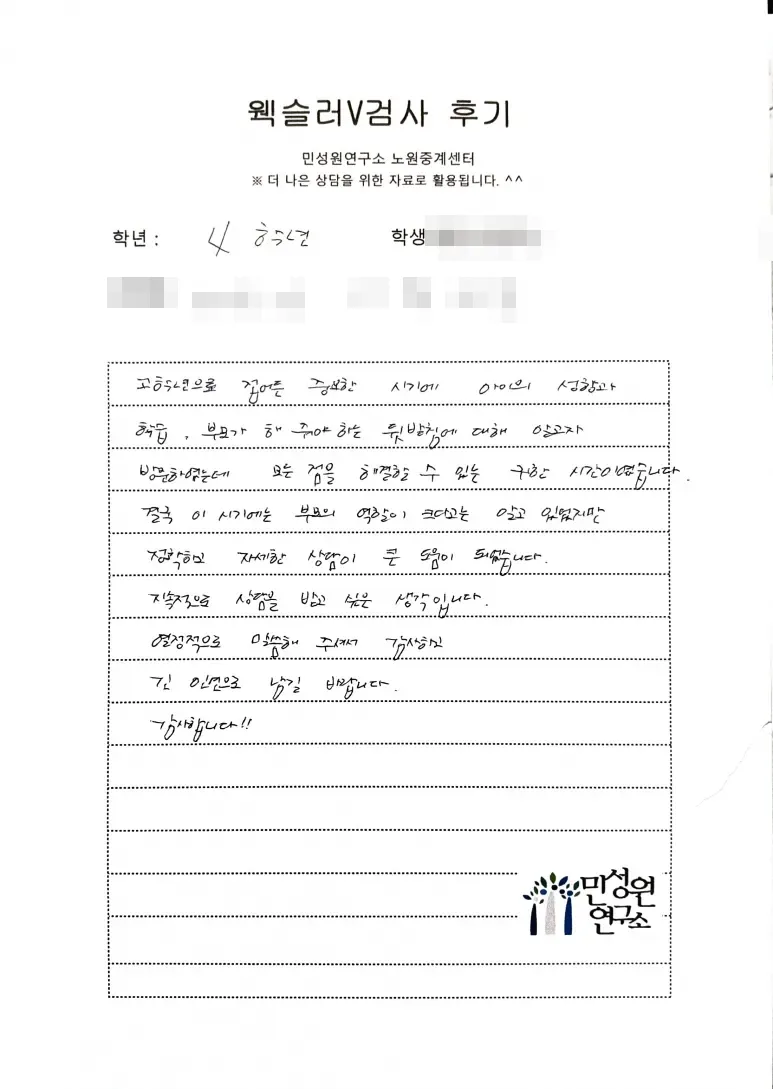 웩슬러V검사 후기
민성원연구소 노원중계센터
※ 더 나은 상담을 위한 자료로 활용됩니다. ^^
학년 : 4학년 학생
고학년으로 접어든 중요한 시기에 아이의 성향과
학습, 부모가 해 주야 하는 뒷받침에 대해 알고자
방문하였는데 모든 점을 해결할 수 있는 귀한 시간이였습니다.
결국 이 시기에는 부모의 역할이 크다고는 알고 있었지만
정확하고 자세한 상담이 큰 도움이 되었습니다.
지속적으로 상담을 받고 싶은 생각입니다.
열정적으로 말씀해 주셔서 감사하고
긴 인연으로 남길 바랍니다.
감사합니다!!
민성원
연구소